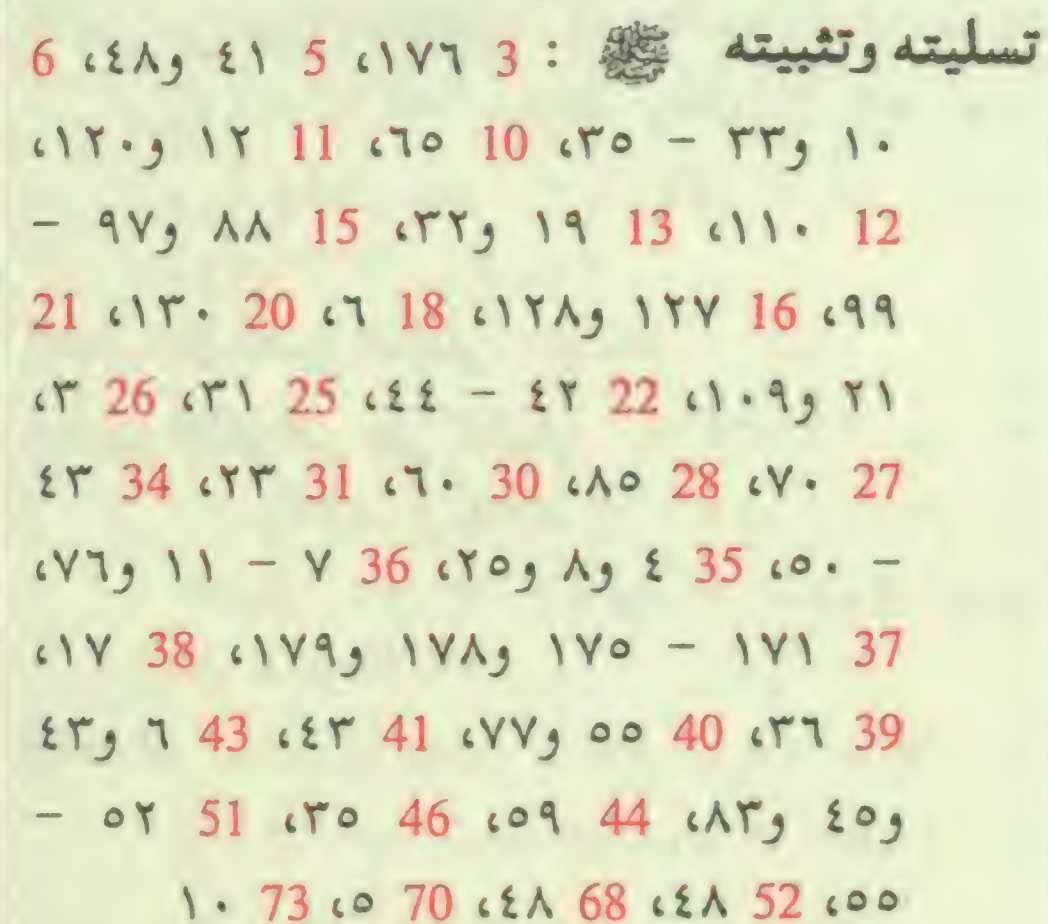 تسليته وتثبيته ﷺ : 3 ١٧٦، 5 ٤١ و٤٨، 6
١٠ و٣٣ - ٣٥، 10 ٦٥، 11 ١٢ و١٢٠،
12 ١١٠، 13 ١٩ و٣٢، 15 ٨٨ و٩٧ -
٩٩، 16 ١٢٧ و١٢٨، 18 ٦، 20 ١٣٠، 21
٢١ و١٠٩، 22 ٤٢ - ٤٤، 25 ٣١، 26 ٣،
27 ٧٠، 28 ٨٥، 30 ٦٠، 31 ٢٣، 34 ٤٣
- ٥٠، 35 ٤ و٨ و٢٥، 36 ٧ - ١١ و٧٦،
37 ١٧١ - ١٧٥ و١٧٨ و١٧٩، 38 ١٧،
39 ٣٦، 40 ٥٥ و٧٧، 41 ٤٣، 43 ٦ و٤٣
و٤٥ و٨٣، 44 ٥٩، 46 ٣٥، 51 ٥٢ -
٥٥، 52 ٤٨، 68 ٤٨، 70 ٥، 73 ١٠